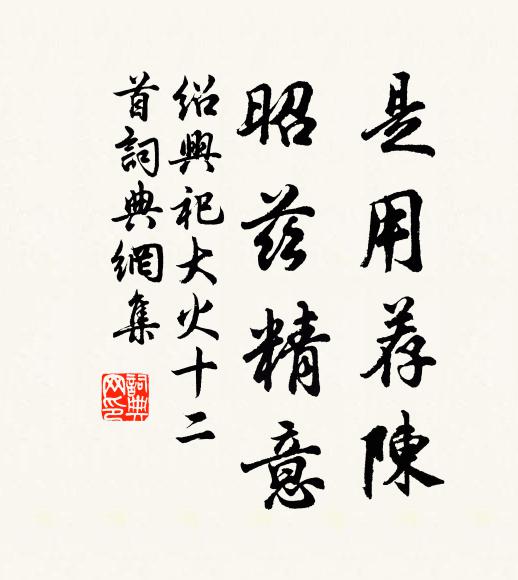 是用荐陳
昭茲精意
紹興祀大火十二
首詞典網集
詞典
网印